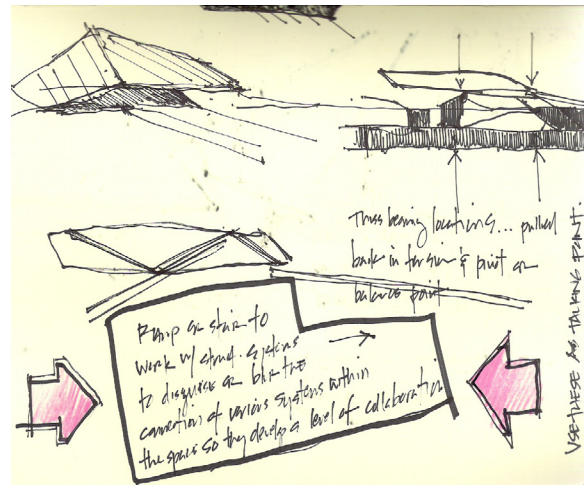 Truss bearing locations... pulled
back in tension & point or
balance point
Ramp or stair to
work w/ struct. systems
to disguise or blur the
connection of various systems within
the space so they develop a level of collaboration
USE THESE AS TALKING POINT.